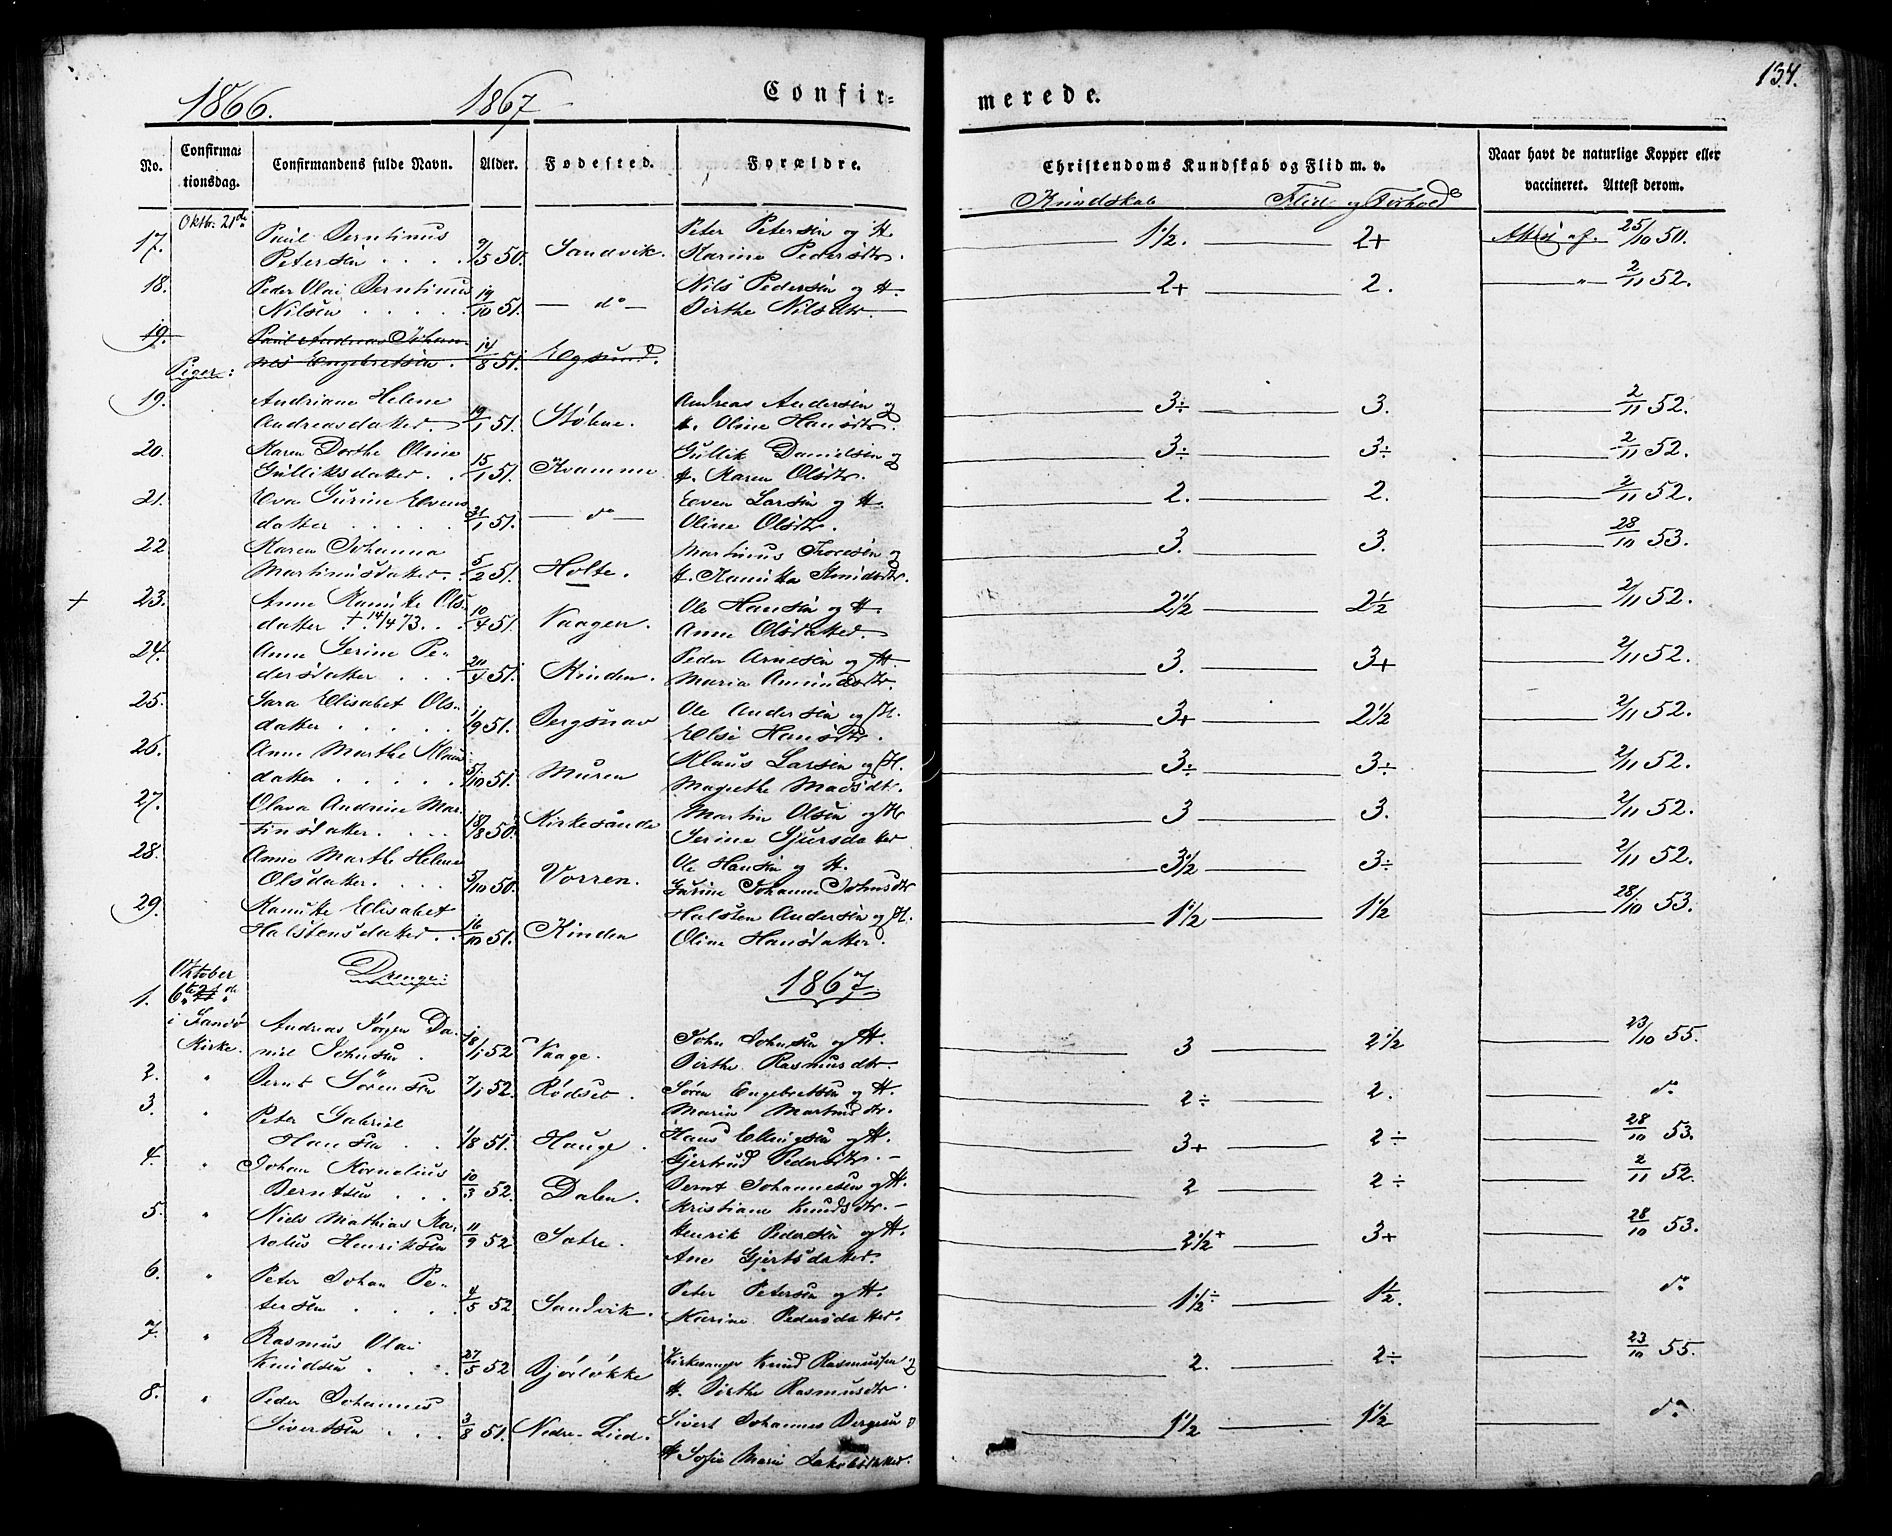 1866. 1867 Confir- merede. 134.
No. Confirma- tionsdag. Confirmandens fulde Navn. Alder. Fødested. Forældre. Christendoms Kundskab og Flid m. v. Naar havt de naturlige Kopper eller vaccineret. Attest derom.
Kundskab Flid og Forhold
Oktbr. 21de
17. Paul Berntinus Petersen 9/5 50. Sandvik. Peter Petersen og H. Karine Pedersdtr. 1 1/2. 2+ Attest af 25/10 50.
18. Peder Olai Berntinus Nilsen 19/10 51. do Nils Pedersen og H. Birthe Nilsdtr. 2+ 2. " 2/11 52.
19. Paul Andreas Johannes Engebretsen 14/8 51. Egsund.
Piger:
19. Andriane Helene Andreasdatter 19/1 51. Støbne. Andreas Andersen og H. Oline Hansdtr. 3÷ 3. 2/11 52.
20. Karen Dorthe Oline Gulliksdatter 15/1 51. Kvamme Gullik Danielsen og H. Karen Olsdtr. 3÷ 3÷ 2/11 52.
21. Eva Gurine Evensdatter 31/1 51. do Even Larsen og H. Oline Olsdtr. 2. 2. 2/11 52.
22 Karen Johanna Martinusdatter 5/2 51. Holte. Martinus Toresen og H. Kanutta Knudsdtr. 3. 3. 28/10 53.
+ 23. Anne Kanutte Olsdatter † 14/4 73. 10/4 51. Vaagen. Ole Hansen og H. Anne Olsdatter. 2 1/2 2 1/2 2/11 52.
24. Anne Serine Pedersdatter 20/4 51. Kinden. Peder Arnesen og H. Maria Amundsdtr. 3. 3+ 2/11 52.
25. Sara Elisabet Olsdatter 1/9 51. Bergsnav Ole Andersen og H. Elsi Hansdtr. 3+ 2 1/2 2/11 52.
26. Anne Marthe Klausdatter 5/10 51. Muren Klaus Larsen og H. Magrethe Madsdt. 3÷ 3÷ 2/11 52.
27. Olava Andrine Martinsdatter. 18/8 50. Kirkesande Martin Olsen og H. Serine Sjursdatter 3 3. 2/11 52.
28. Anne Marthe Helene Olsdatter. 5/10 50. Vorren. Ole Hansen og H. Gurine Johanne Johnsdtr 3 1/2 3÷ 2/11 52.
29. Kanutte Elisabet Halstensdatter 16/10 51. Kinden Halsten Andersen og H. Oline Hansdatter. 1 1/2 1 1/2 28/10 53.
Oktober 6te i Sandø Kirke. Drenge: 1867
1. Andreas Jørgen Daniel Johnsen 18/1 52 Vaage. John Johnsen og H. Birthe Rasmusdtr. 3 2 1/2 23/10 55.
2. " Bernt Sörensen 7/1 52. Rödset. Søren Engebretsen og H. Maria Martinsdtr. 2÷ 2. do
3. " Peter Gabriel Hansen 1/8 51. Hauge. Hans Ellingsen og H. Gjertrud Pedersdtr. 3+ 2÷ 28/10 53.
4. " Johan Kornelius Berntsen 10/3 52. Dalen. Bernt Johannesen og H. Kristiane Knudsdtr. 2 2÷ 2/11 52.
5. " Niels Mathias Karolus Henriksen 11/9 52 Satre. Henrik Pedersen og H. Ane Gjertsdatter. 2 1/2+ 3+ 28/10 53.
6. " Peter Johan Petersen 4/5 52 Sandvik. Peter Petersen og H. Karine Pedersdatter. 1 1/2÷ 1 1/2. do
7. " Rasmus Olai Knudsen 27/5 52 Bjørløkke Kirkesanger Knud Rasmussen og H. Birthe Rasmusdtr. 2. 2÷ 23/10 55.
8. " Peder Johannes Sivertsen 3/8 51. Nedre-Lied. Sivert Johannes Bergesen og H. Sofie Marie Jakobsdatter. 1 1/2 1 1/2 do